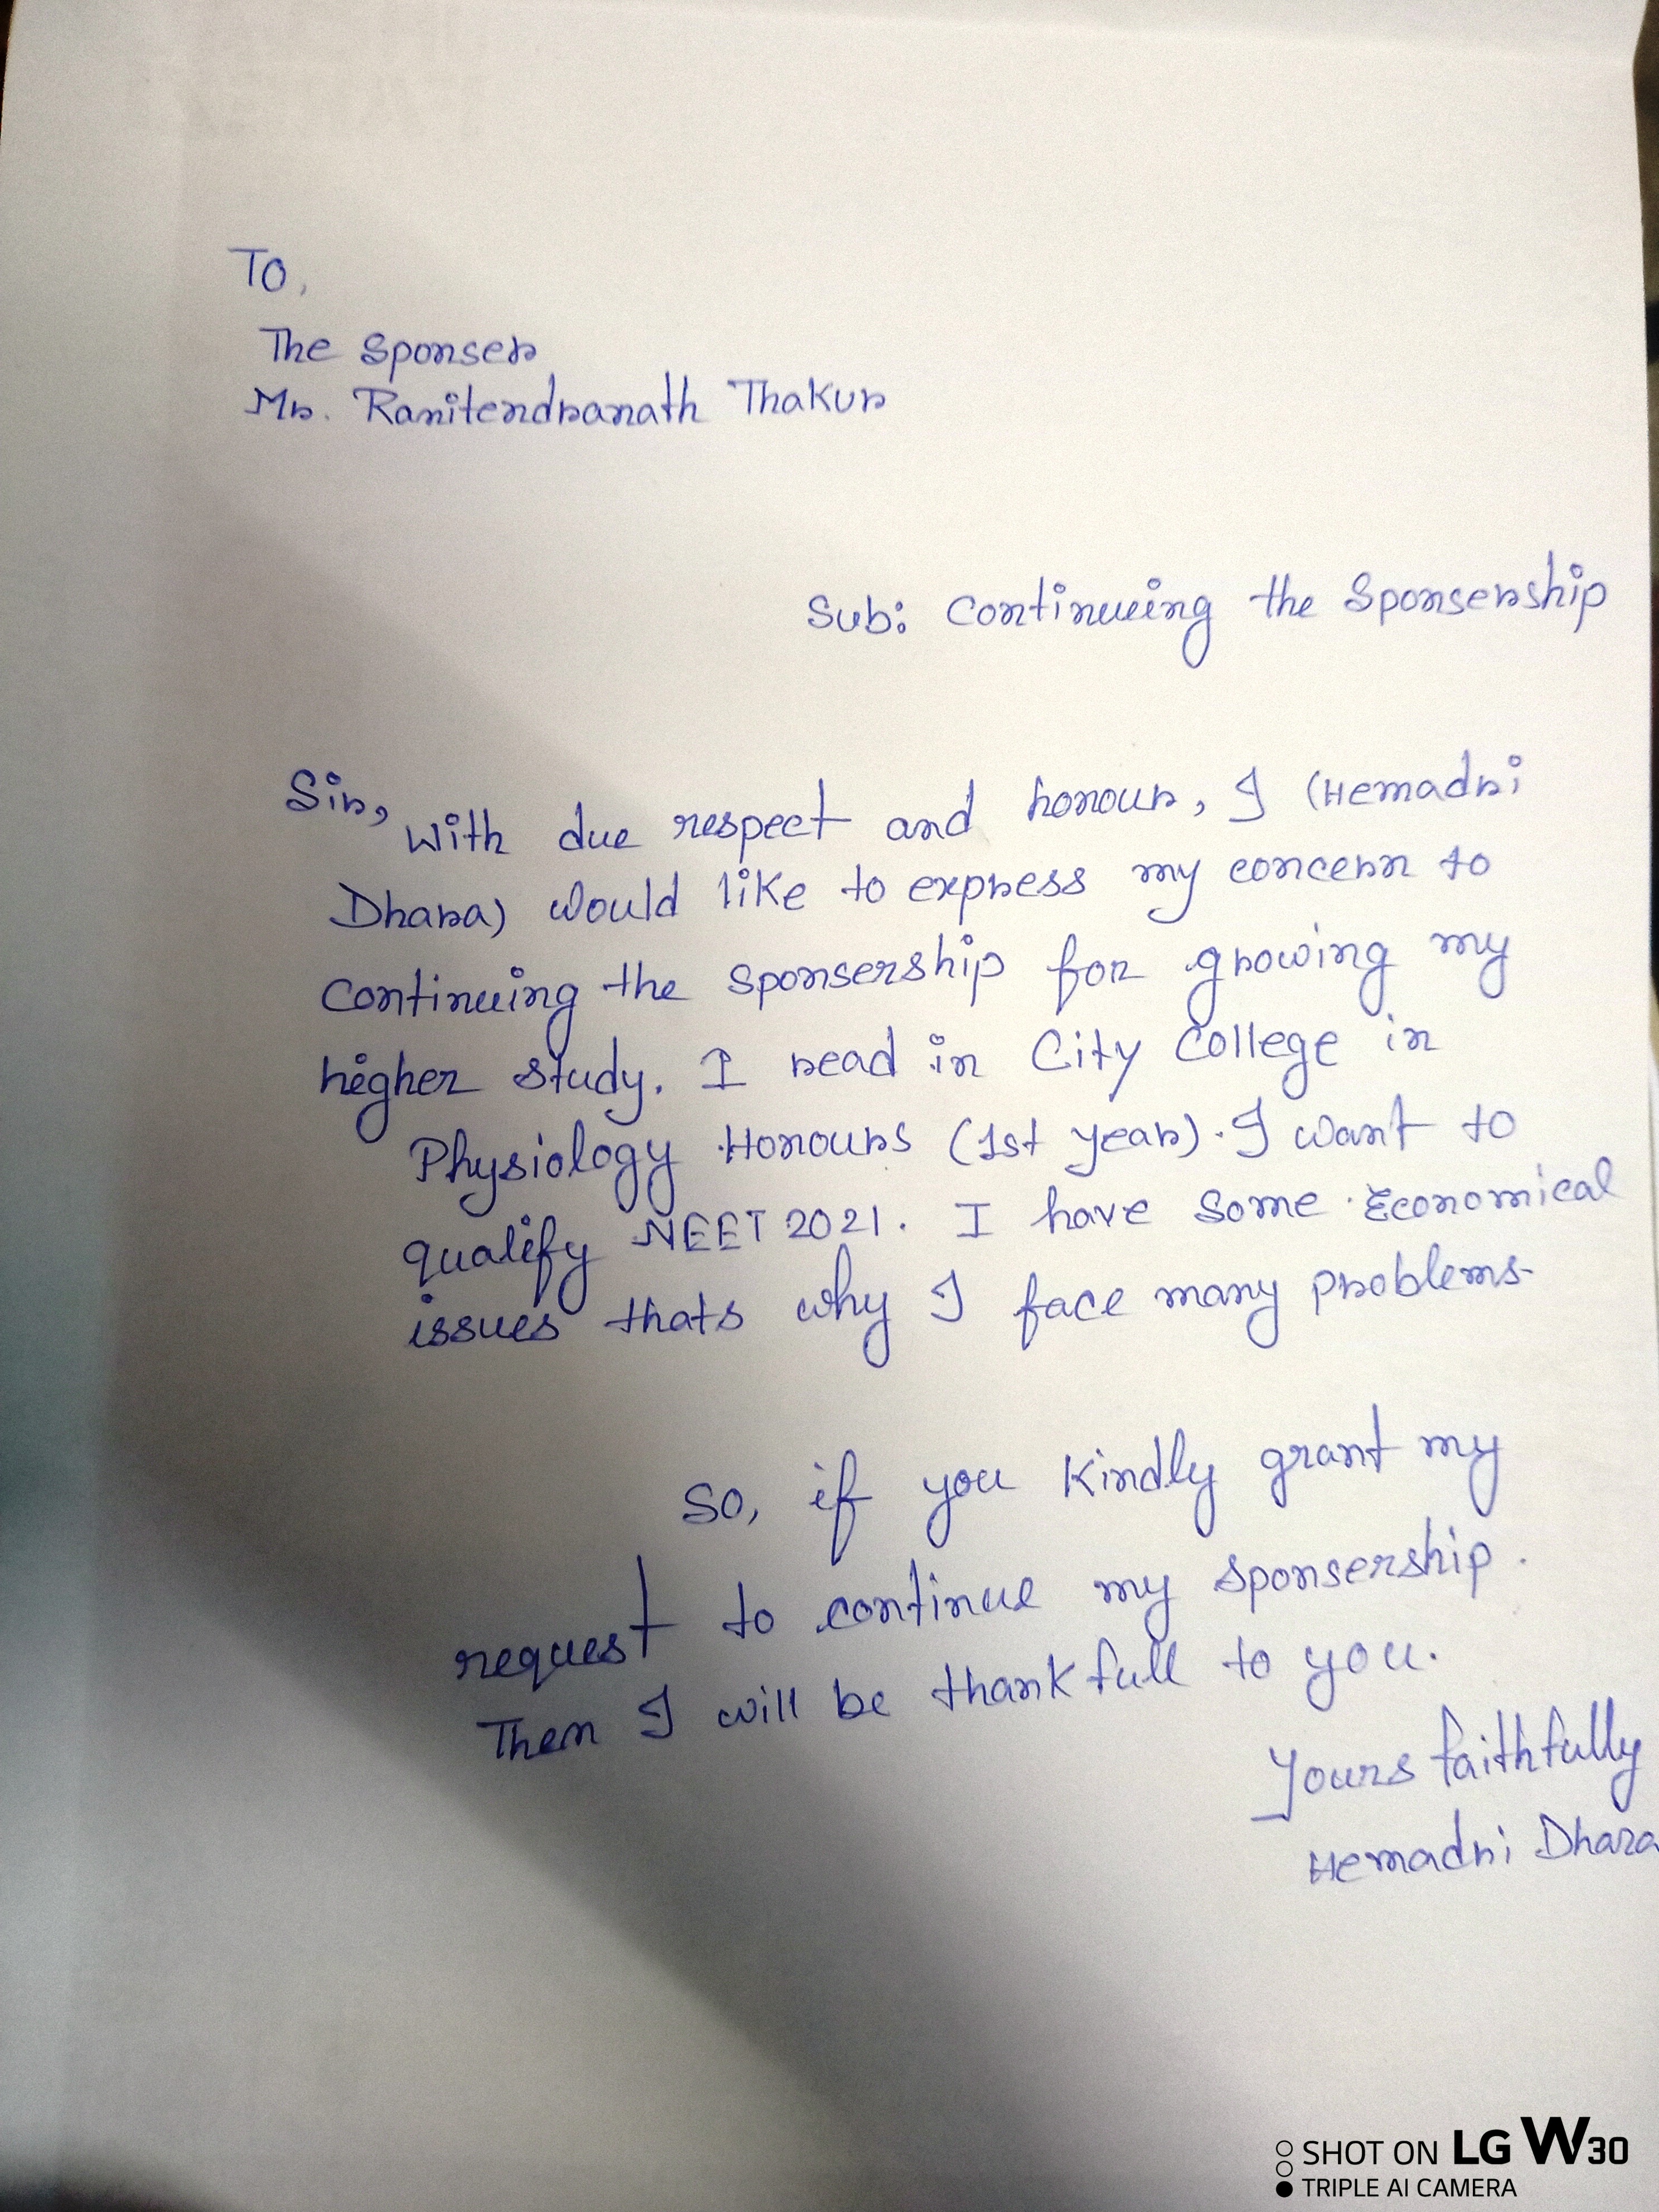 To,
The Sponser
Mr. Ranitendranath Thakur
Sub: Continueing the Sponsership
Sir,
With due respect and honour, I (Hemadri
Dhara) would like to express my concern to
Continueing the sponsership for growing my
higher study. I read in City College in
Physiology Honours (1st year). I want to
qualify NEET 2021. I have some Economical
issues thats why I face many problems.
So, if you kindly grant my
request to continue my sponsership.
Then I will be thankfull to you.
Yours faithfully
Hemadri Dhara
SHOT ON LG W30
TRIPLE AI CAMERA